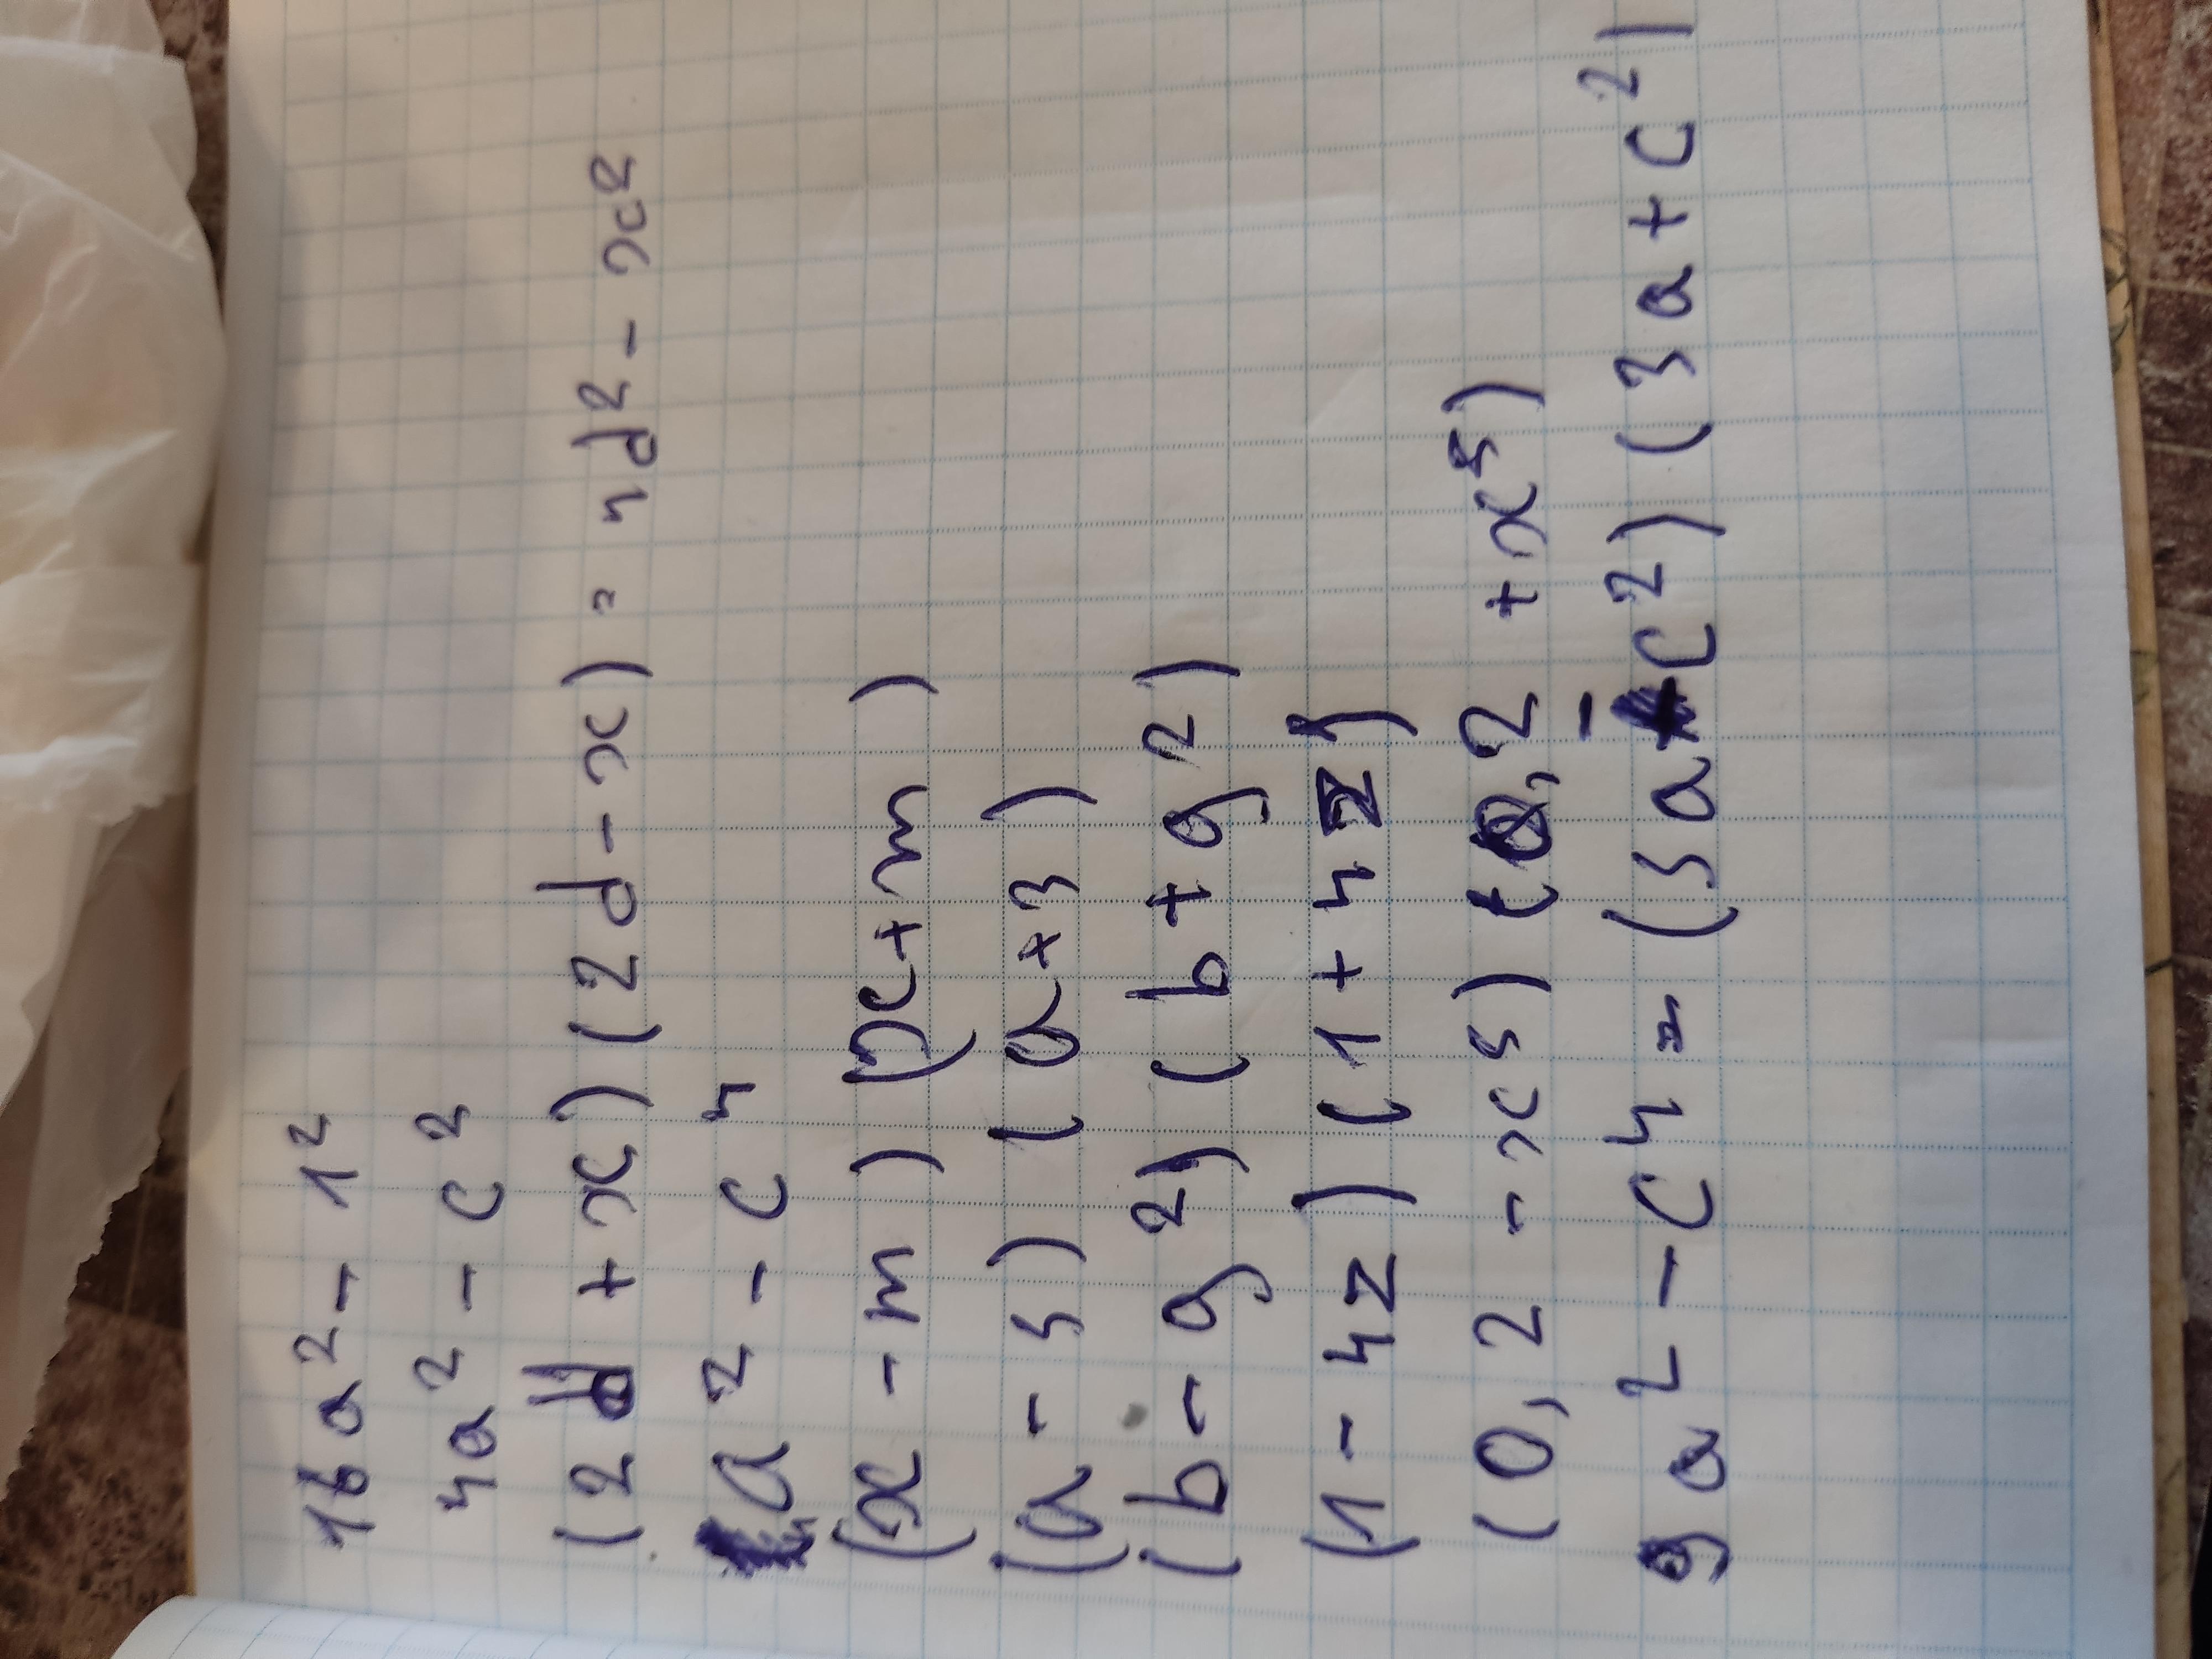 16a² - 1²
4a² - c²
(2d + x)(2d - x) = 4d² - x²
a² - c⁴
(x - m)(x + m)
(a - 3)(a + 3)
(b - g²)(b + g²)
(1 - 4z)(1 + 4z)
(0,2 - x⁵)(0,2 + x⁵)
9a² - c⁴ = (3a - c²)(3a + c²)